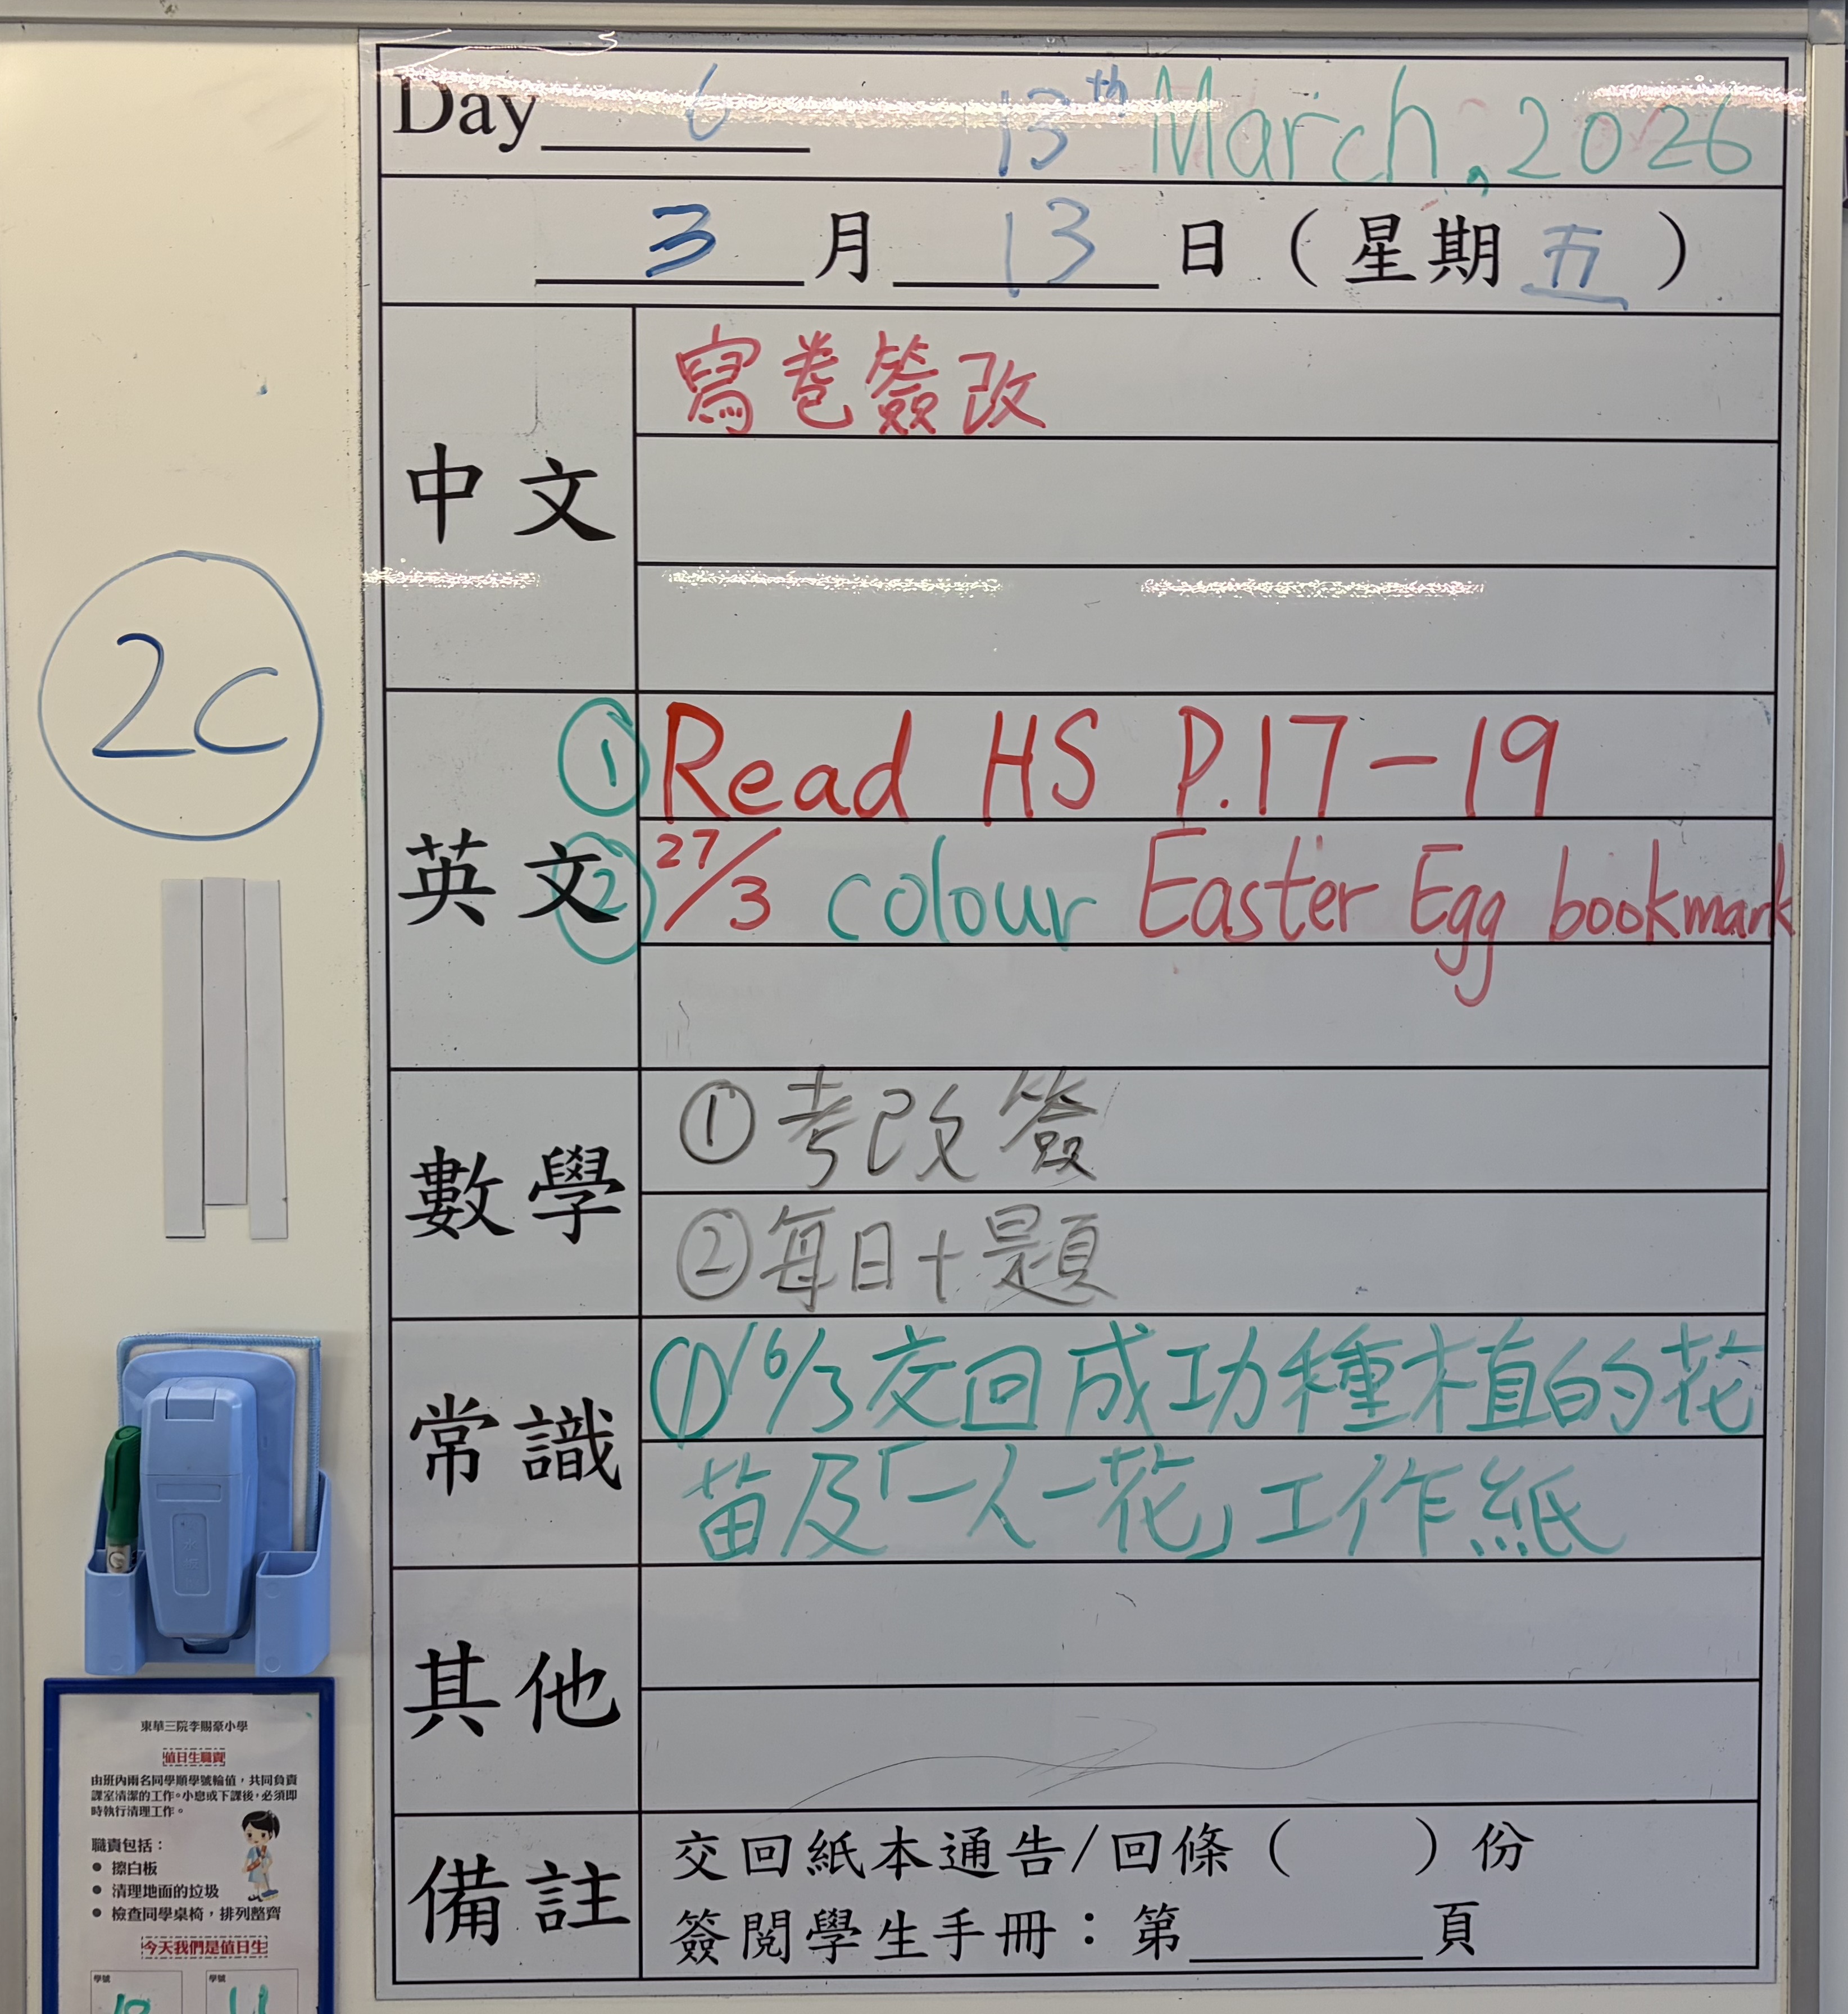 Day 6 13th March, 2026
3 月 13 日（星期五）
中文
寫卷簽改
2C
英文
① Read HS P.17-19
② 27/3 colour Easter Egg bookmark
數學
① 考改簽
② 每日十題
常識
① 16/3 交回成功種植的花
苗及「一人一花」工作紙
其他
備註
交回紙本通告/回條（　）份
簽閱學生手冊：第______頁
東華三院李賜豪小學
值日生職責
由班內兩名同學順學號輪值，共同負責
課室清潔的工作。小息或下課後，必須即
時執行清理工作。
職責包括：
● 擦白板
● 清理地面的垃圾
● 檢查同學桌椅，排列整齊
今天我們是值日生
學號 學號